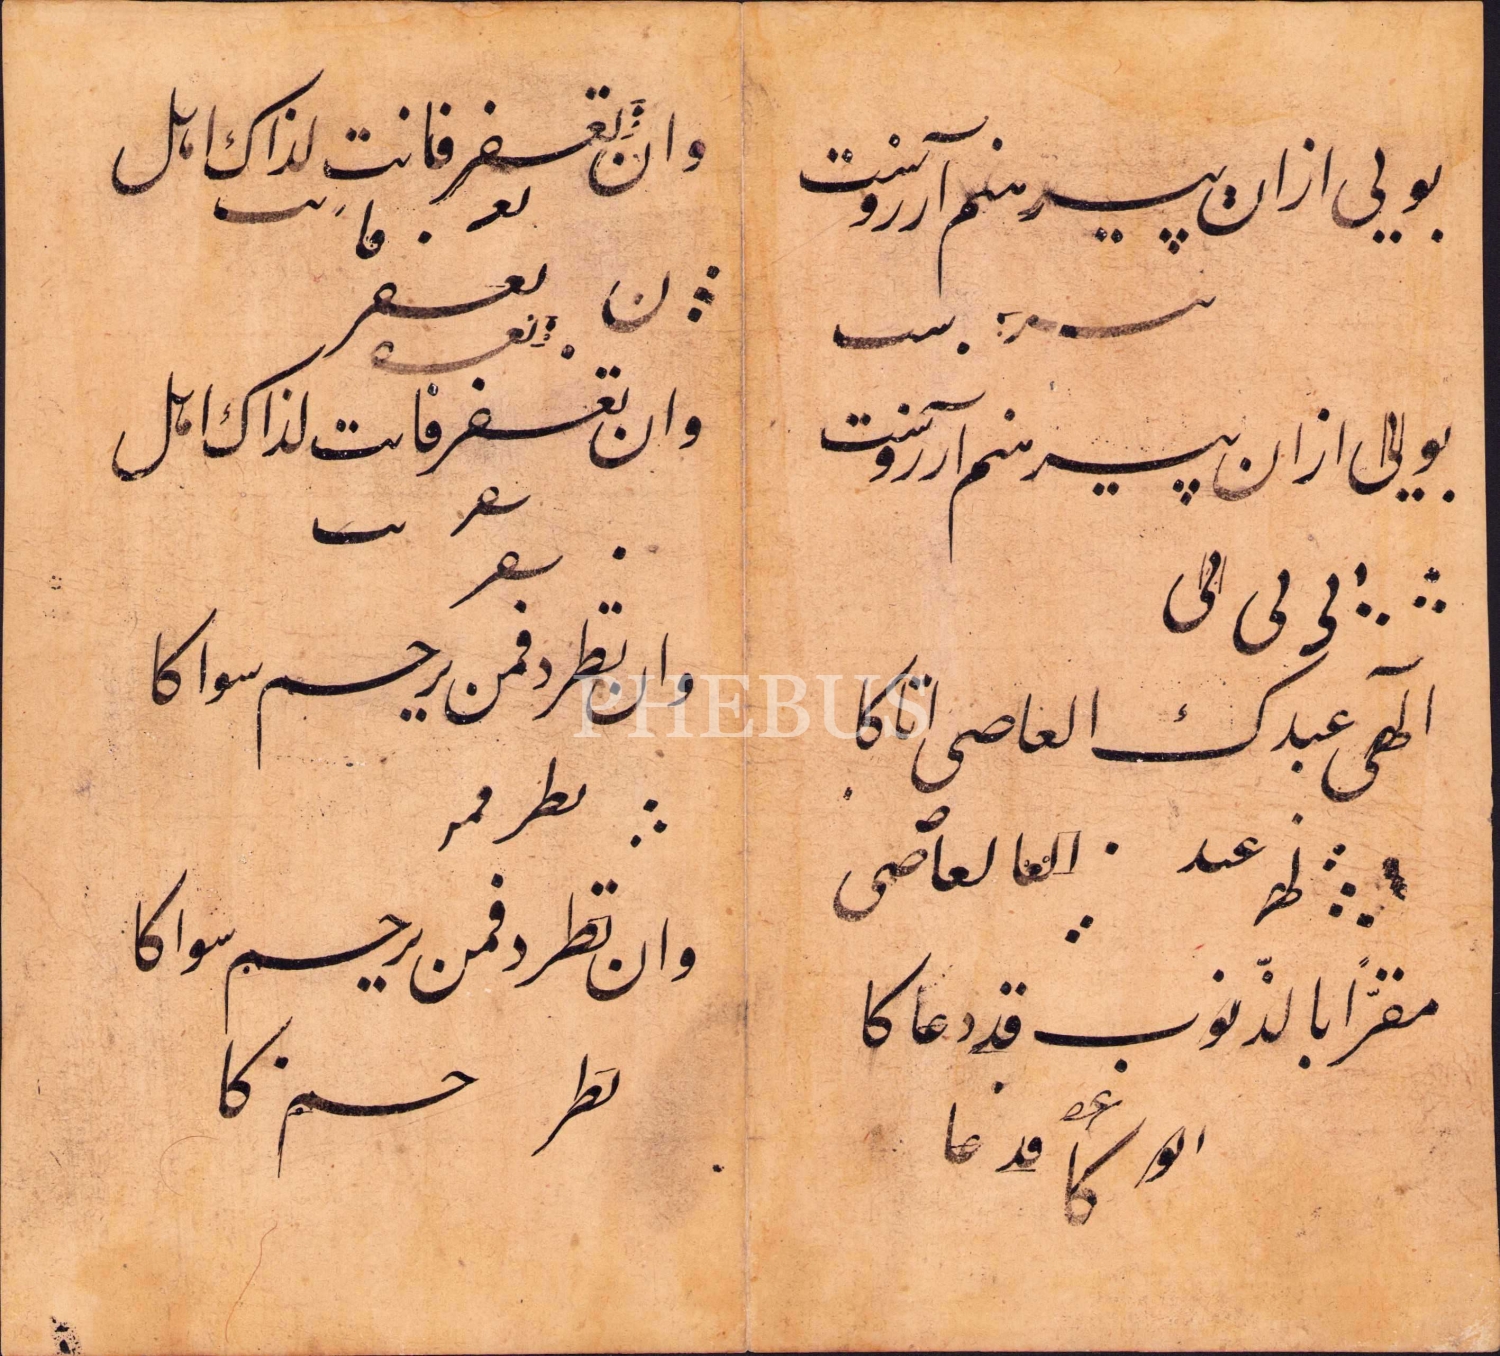 بویی ازان پیرهنم آرزوست
بویی ازان پیرهنم آرزوست
لی لی لی
الٓهی عبدک العاصی اتاکا
عبد العا لعاصی
مقرًّا بالذّنوب قد دعاکا
کا قد عا
وان تغفر فانت لذاک اهل
ن تغفر
وان تغفر فانت لذاک اهل
وان تطرد فمن یرحم سواکا
وان تطرد فمن یرحم سواکا
کا
PHEBUS